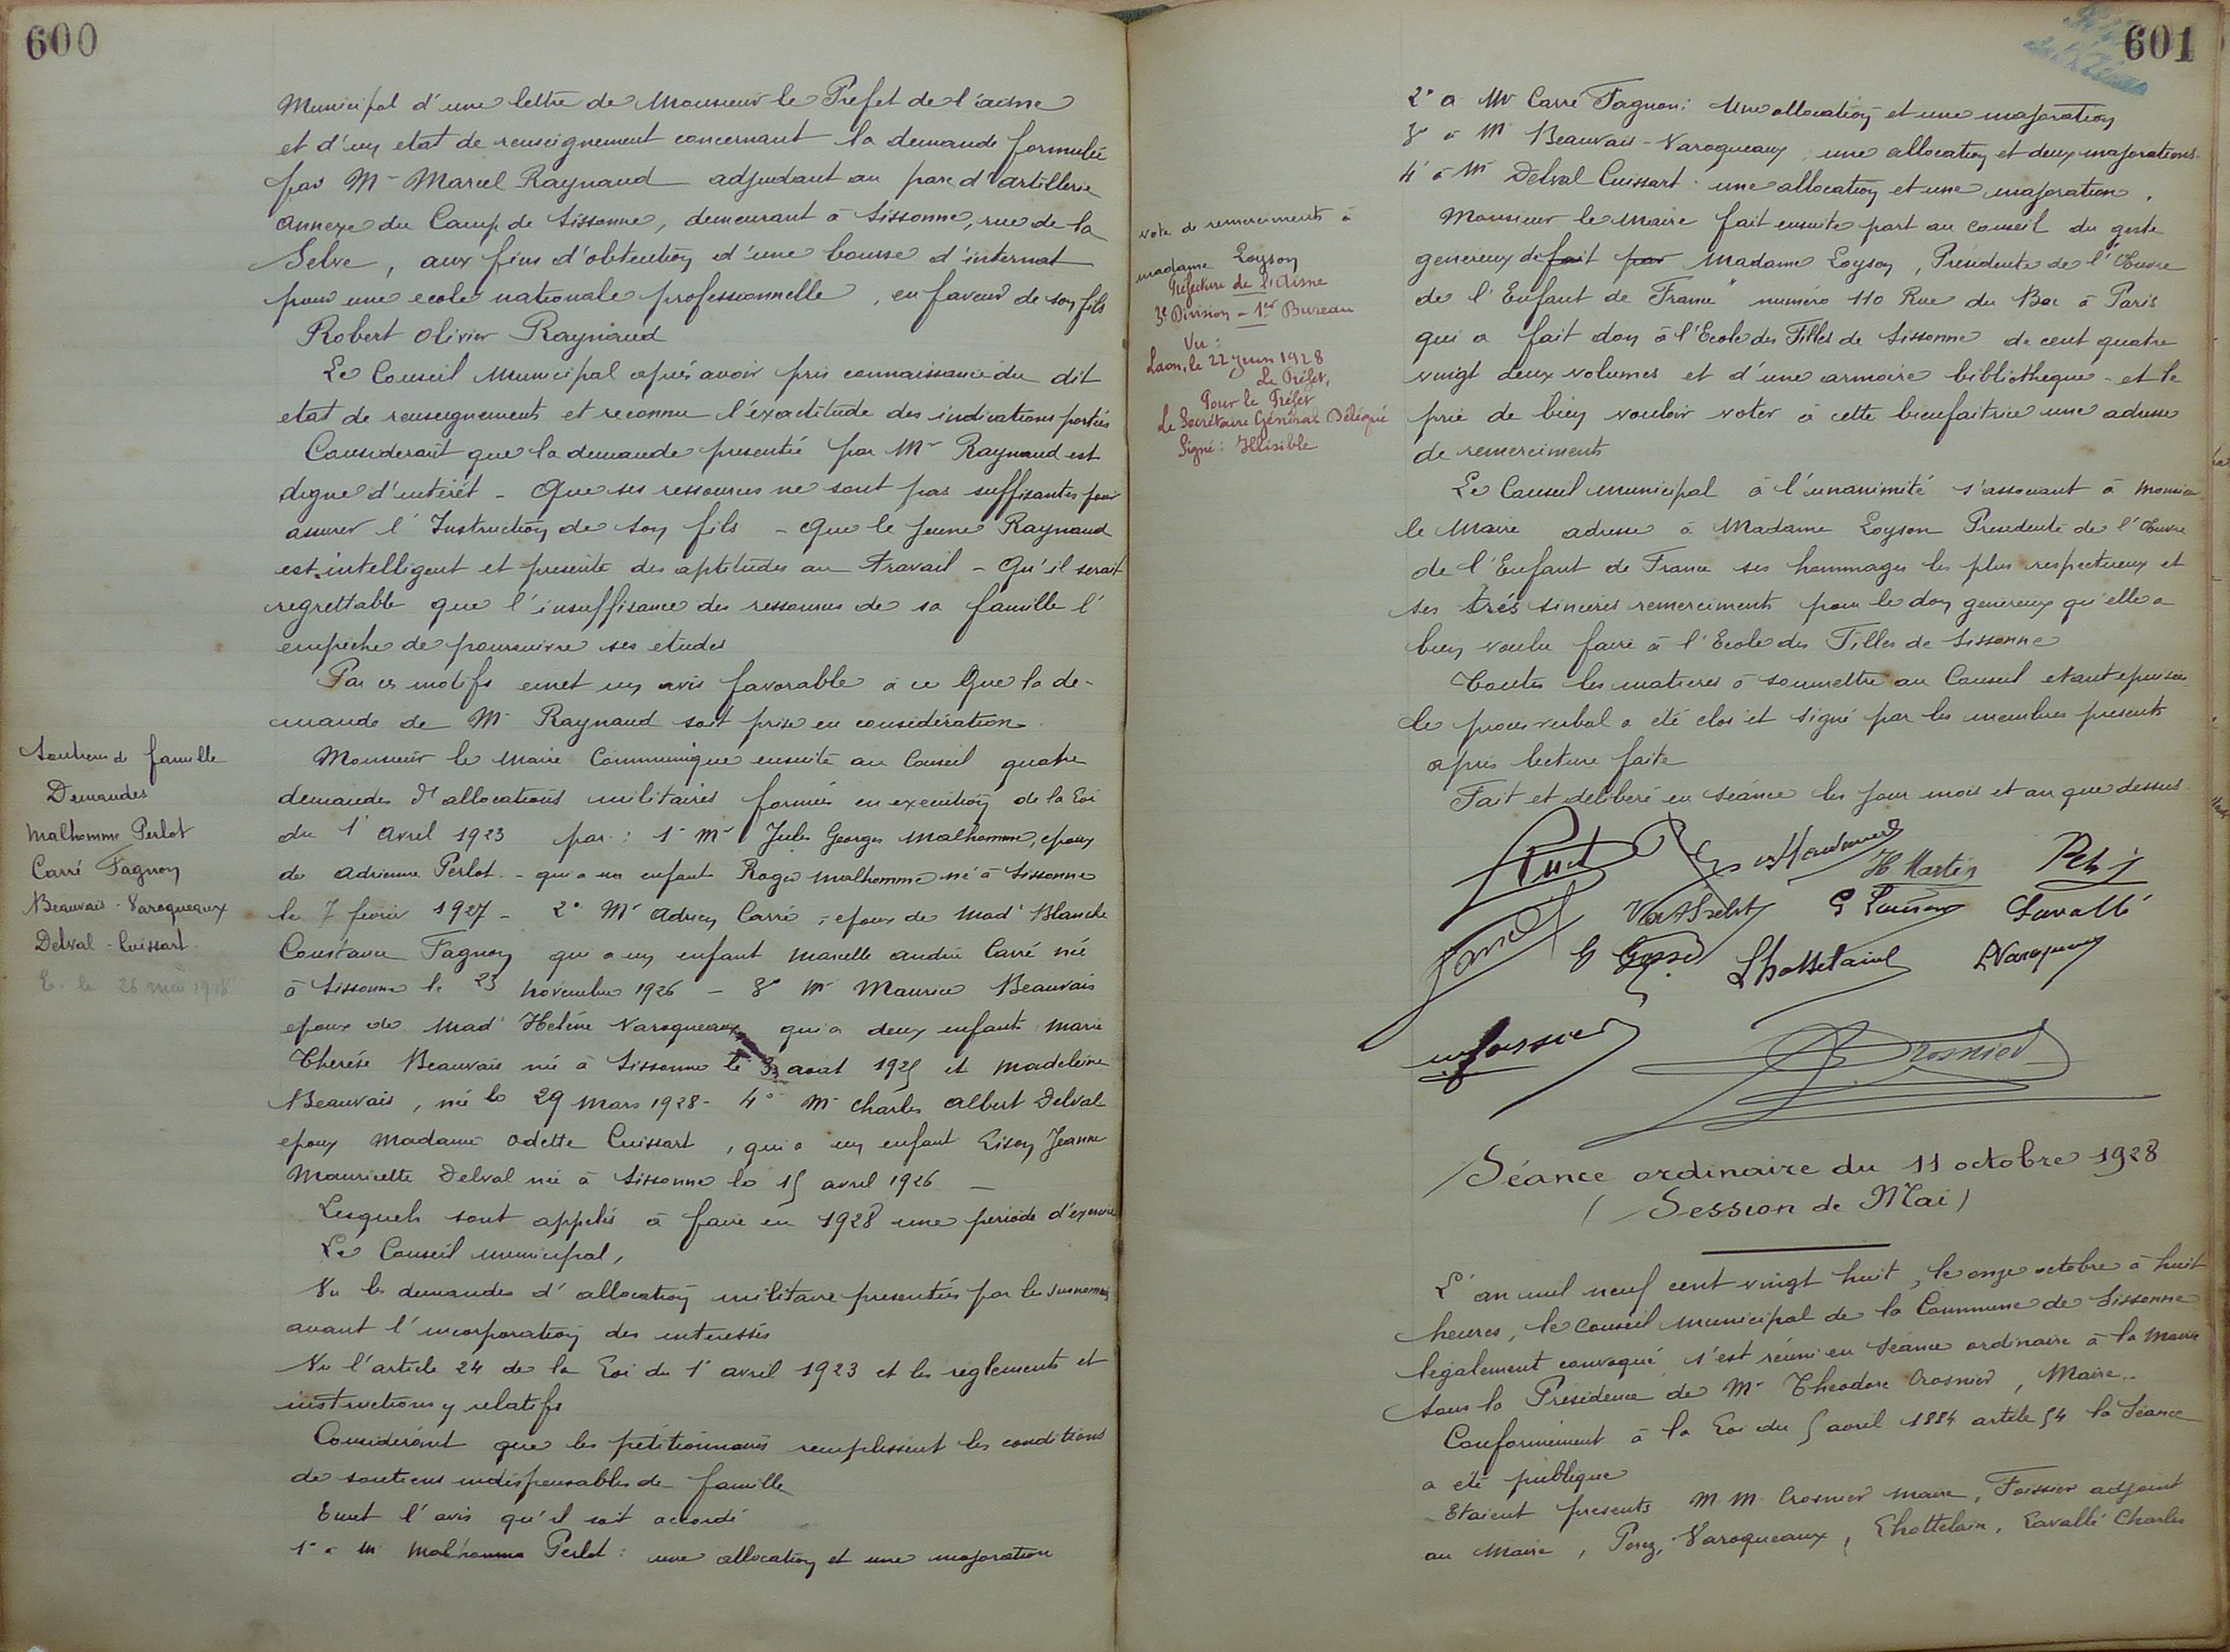 600
Municipal d'une lettre de Monsieur le Prefet de l'aisne
et d'un etat de renseignement concernant la demande formulée
par Mr Marcel Raynaud adjudant au parc d'artillerie
annexe du Camp de Sissonne, demeurant à Sissonne, rue de la
Selve, aux fins d'obtention d'une bourse d'internat
pour une ecole nationale professionnelle, en faveur de son fils
Robert Olivier Raynaud
Le Conseil Municipal après avoir pris connaissance du dit
etat de renseignements et reconnu l'éxactitude des indications portées
Considerant que la demande presentée par Mr Raynaud est
digne d'intérêt - Que ses ressources ne sont pas suffisantes pour
assurer l'Instruction de son fils - Que le jeune Raynaud
est intelligent et presente des aptitudes au travail - Qu'il serait
regrettable que l'insuffisance des ressources de sa famille l'
empeche de poursuivre ses etudes
Par ces motifs emet un avis favorable à ce Que la de-
mande de Mr Raynaud soit prise en considération.
Soutiens de famille
Demandes
Malhomme Perlot
Carré Fagnon
Beauvais - Varoqueaux
Delval - Cuissart
E. le 26 mai 1928
Monsieur le Maire Communique ensuite au Conseil quatre
demandes d'allocations militaires formées en execution de la Loi
du 1er Avril 1923 par : 1° Mr Jules Georges Malhomme, epoux
de Adrienne Perlot - qui a un enfant Roger Malhomme né à Sissonne
le 7 fevrier 1927 - 2° Mr Adrien Carré, epoux de Made Blanche
Constance Fagnon qui a un enfant Marcelle Andrée Carré née
à Sissonne le 23 Novembre 1926 - 3° Mr Maurice Beauvais
epoux de Made Helène Varoqueaux qui a deux enfants Marie
Therèse Beauvais née à Sissonne le 3 aout 1925 et Madeleine
Beauvais, née le 29 Mars 1928 - 4° Mr Charles Albert Delval
epoux Madame Odette Cuissart, qui a un enfant Lison Jeanne
Mauricette Delval née à Sissonne le 15 avril 1926 -
Lesquels sont appelés à faire en 1928 une periode d'exercice
Le Conseil municipal,
Vu les demandes d'allocation militaire presentées par les susnommés
avant l'incorporation des interessés
Vu l'article 24 de la Loi du 1er avril 1923 et les réglements et
instructions y relatifs
Considérant que les pétitionnaires remplissent les conditions
de soutiens indispensables de famille
Emet l'avis qu'il soit accordé
1° à Mr Malhomme Perlot : une allocation et une majoration
601
2° à Mr Carré Fagnon : Une allocation et une majoration
3° à Mr Beauvais - Varoqueaux : une allocation et deux majorations
4° à Mr Delval Cuissart : une allocation et une majoration.
vote de remerciments à
madame Loyson
Préfecture de l'Aisne
3e Division - 1er Bureau
Vu :
Laon, le 22 Juin 1928
Le Préfet,
Pour le Préfet
Le Secrétaire Général Délégué
Signé : Illisible
Monsieur le Maire fait ensuite part au conseil du geste
genereux de fait par Madame Loyson, Presidente de l'Œuvre
de l'Enfant de France" numéro 110 Rue du Bac à Paris
qui a fait don à l'Ecole des Filles de Sissonne de cent quatre
vingt deux volumes et d'une armoire bibliotheque - et le
prie de bien vouloir voter à cette bienfaitrice une adresse
de remerciments
Le Conseil municipal à l'unanimité s'associant à Monsieur
le Maire adresse à Madame Loyson Presidente de l'Œuvre
de l'Enfant de France ses hommages les plus respectueux et
ses très sinceres remerciments pour le don genereux qu'elle a
bien voulu faire à l'Ecole des Filles de Sissonne
Toutes les matieres à soumettre au Conseil etant epuisées
le proces verbal a été clos et signé par les membres presents
après lecture faite
Fait et délibéré en séance les jour mois et an que dessus
H Martin
Lavallé
G Gosse
Lhottelain
LVaroqueaux
Foissier
Crosnier
Séance ordinaire du 11 octobre 1928
( Session de Mai )
L'an mil neuf cent vingt huit, le onze octobre à huit
heures, le Conseil municipal de la Commune de Sissonne
légalement convoqué s'est réuni en séance ordinaire à la Mairie
sous la Présidence de Mr Theodore Crosnier, Maire.
Conformément à la Loi du 5 avril 1884 article 54 la Séance
a été publique
Etaient presents M.M. Crosnier maire, Foissier adjoint
au Maire, Porez, Varoqueaux, Lhottelain, Lavallé Charles